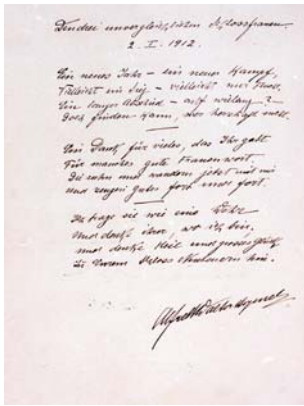 Den drei unvergleichlichen Schlossfrauen.
2. I. 1912.
Ein neues Jahr – ein neuer Kampf,
Vielleicht ein Sieg – vielleicht nur
Ein langer Abschied – auf wielang?
Doch finden kann, wer
Ein Dank für vieles, das Ihr gabt
Für manches gute Frauenwort
Die ruhn und wandern jetzt mit mir
Und zeugen Gutes fort und fort.
Ich trage sie wie eine
Und denke ihrer, wo ich bin,
Und denke Heil und grosses Glück
zu Eurem Schloss hin.
Alfred Walter Heymel